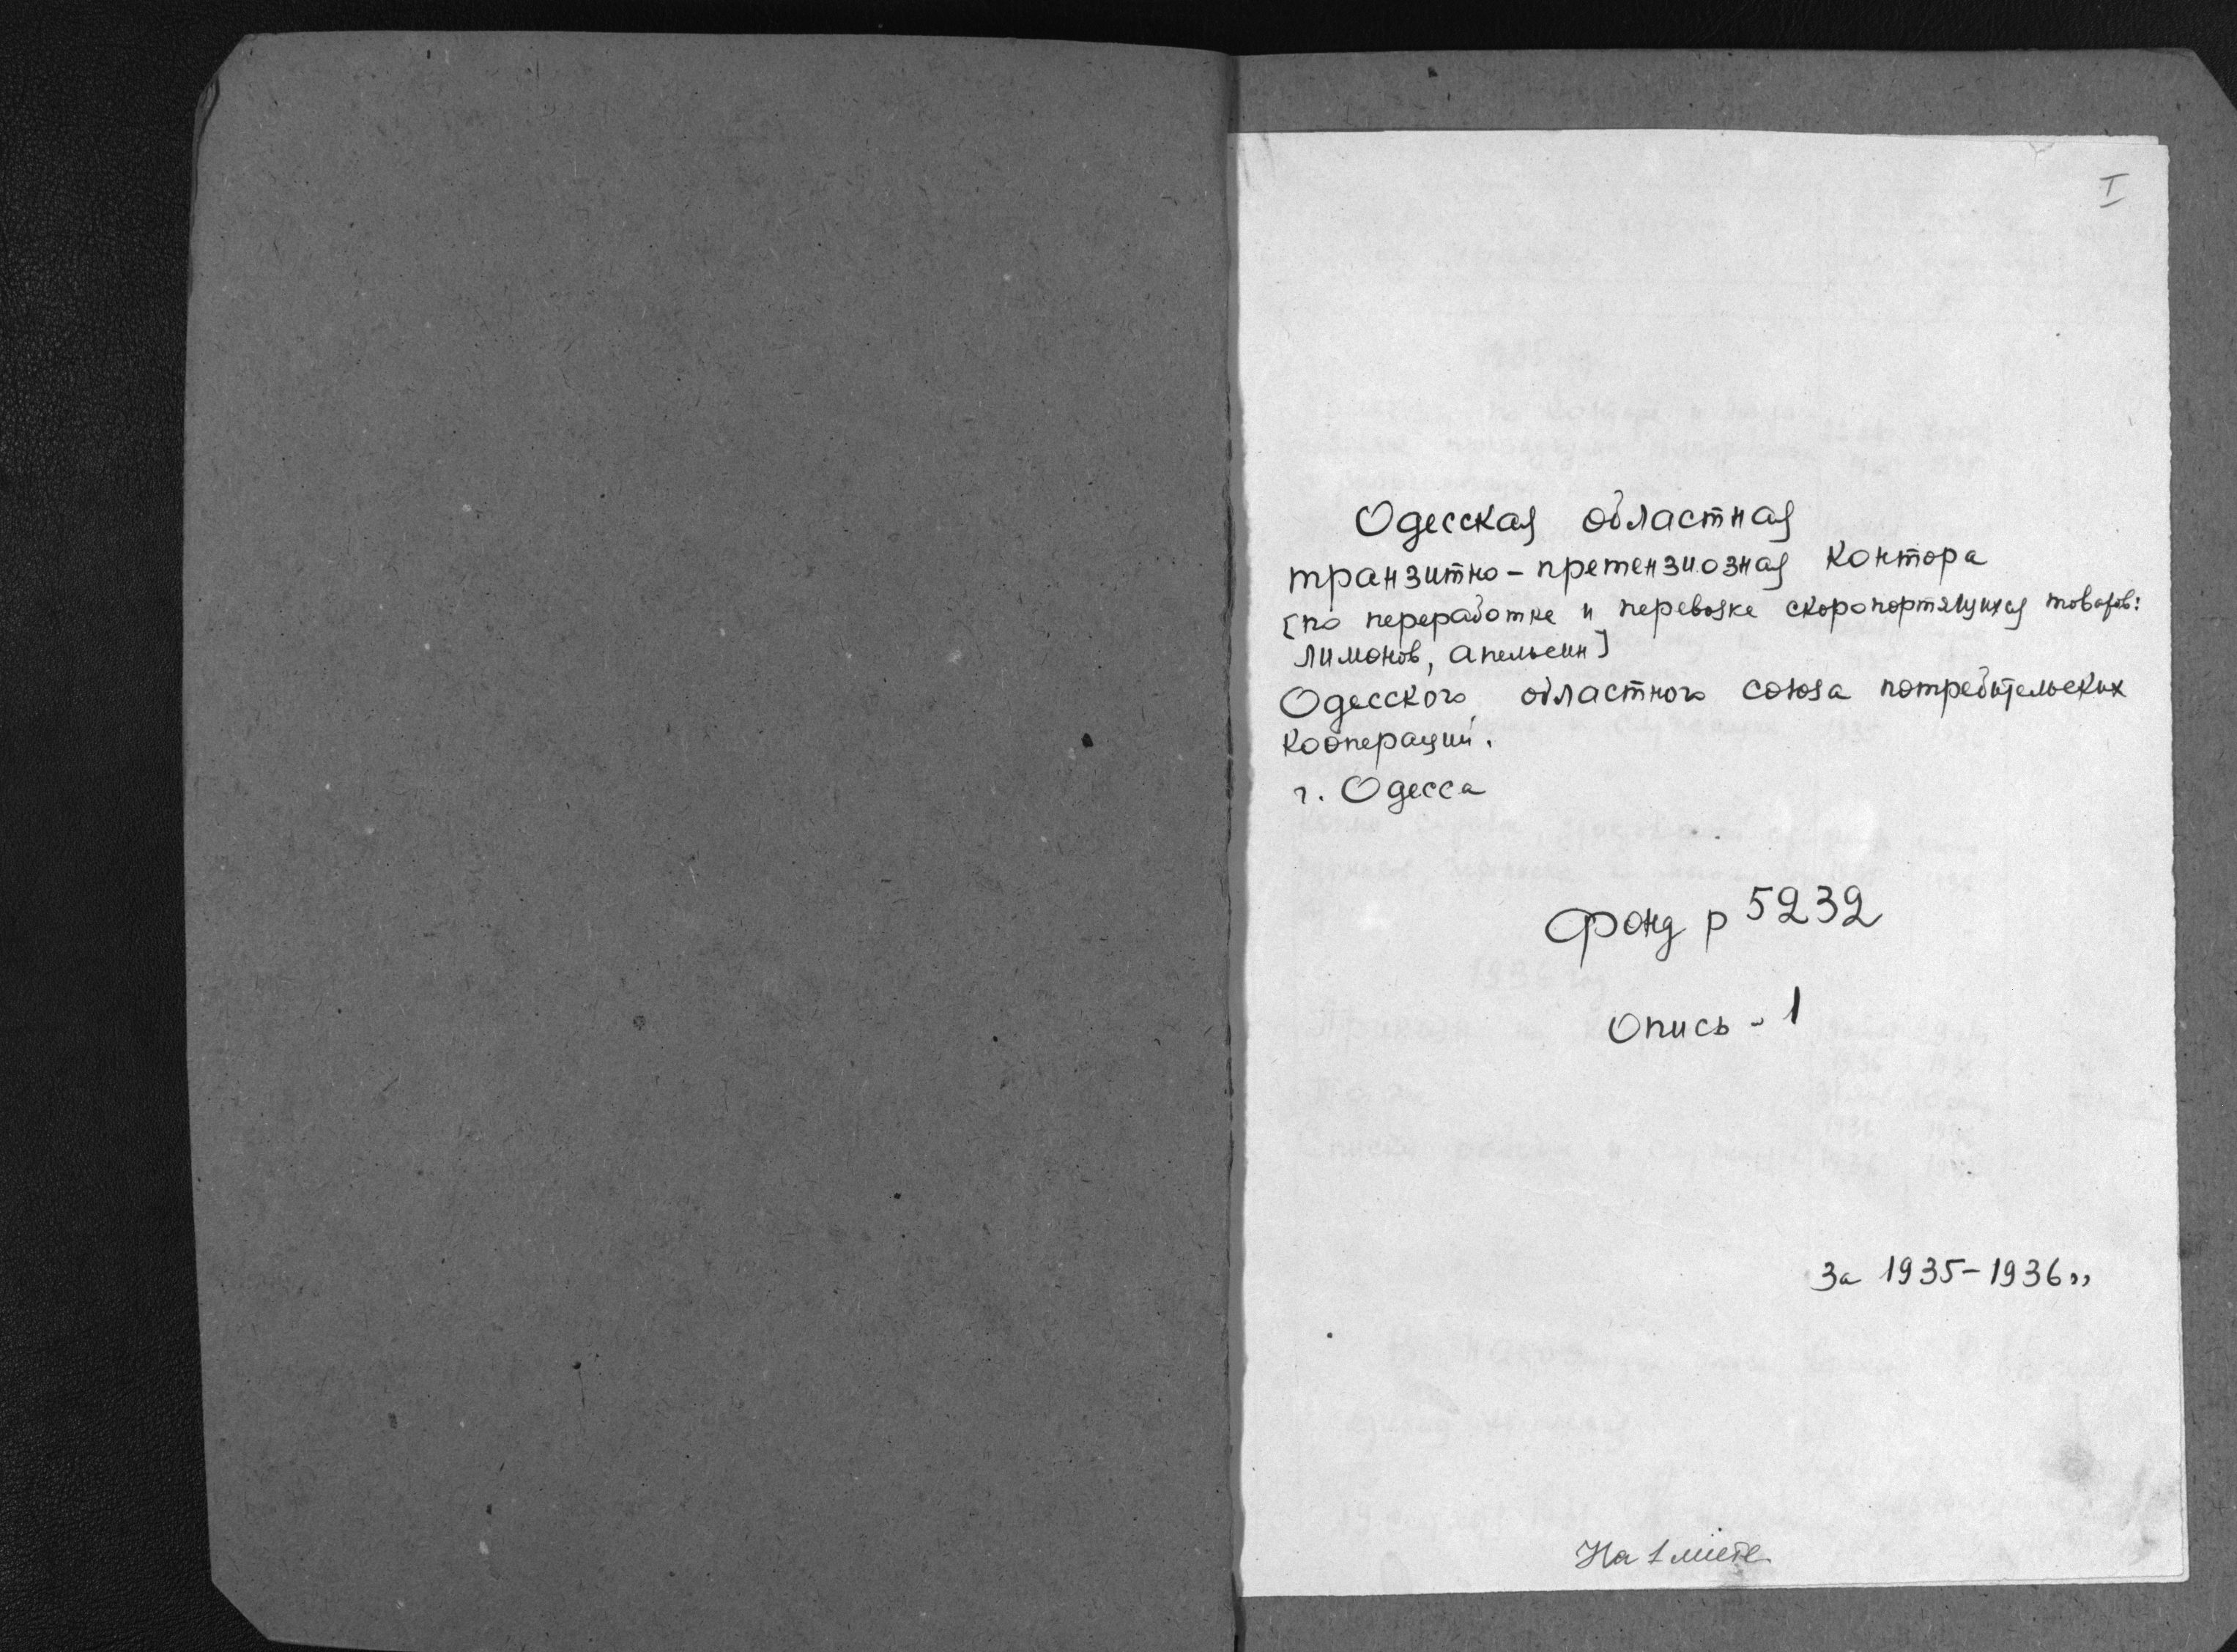 I
Одесская областная
транзитно-претензиозная контора
[по переработке и перевозке скоропортящихся товаров:
лимонов, апельсин]
Одесского областного союза потребительских
коопераций.
г. Одесса
Фонд р 5232
Опись - 1
За 1935-1936 гг
На 1 листе